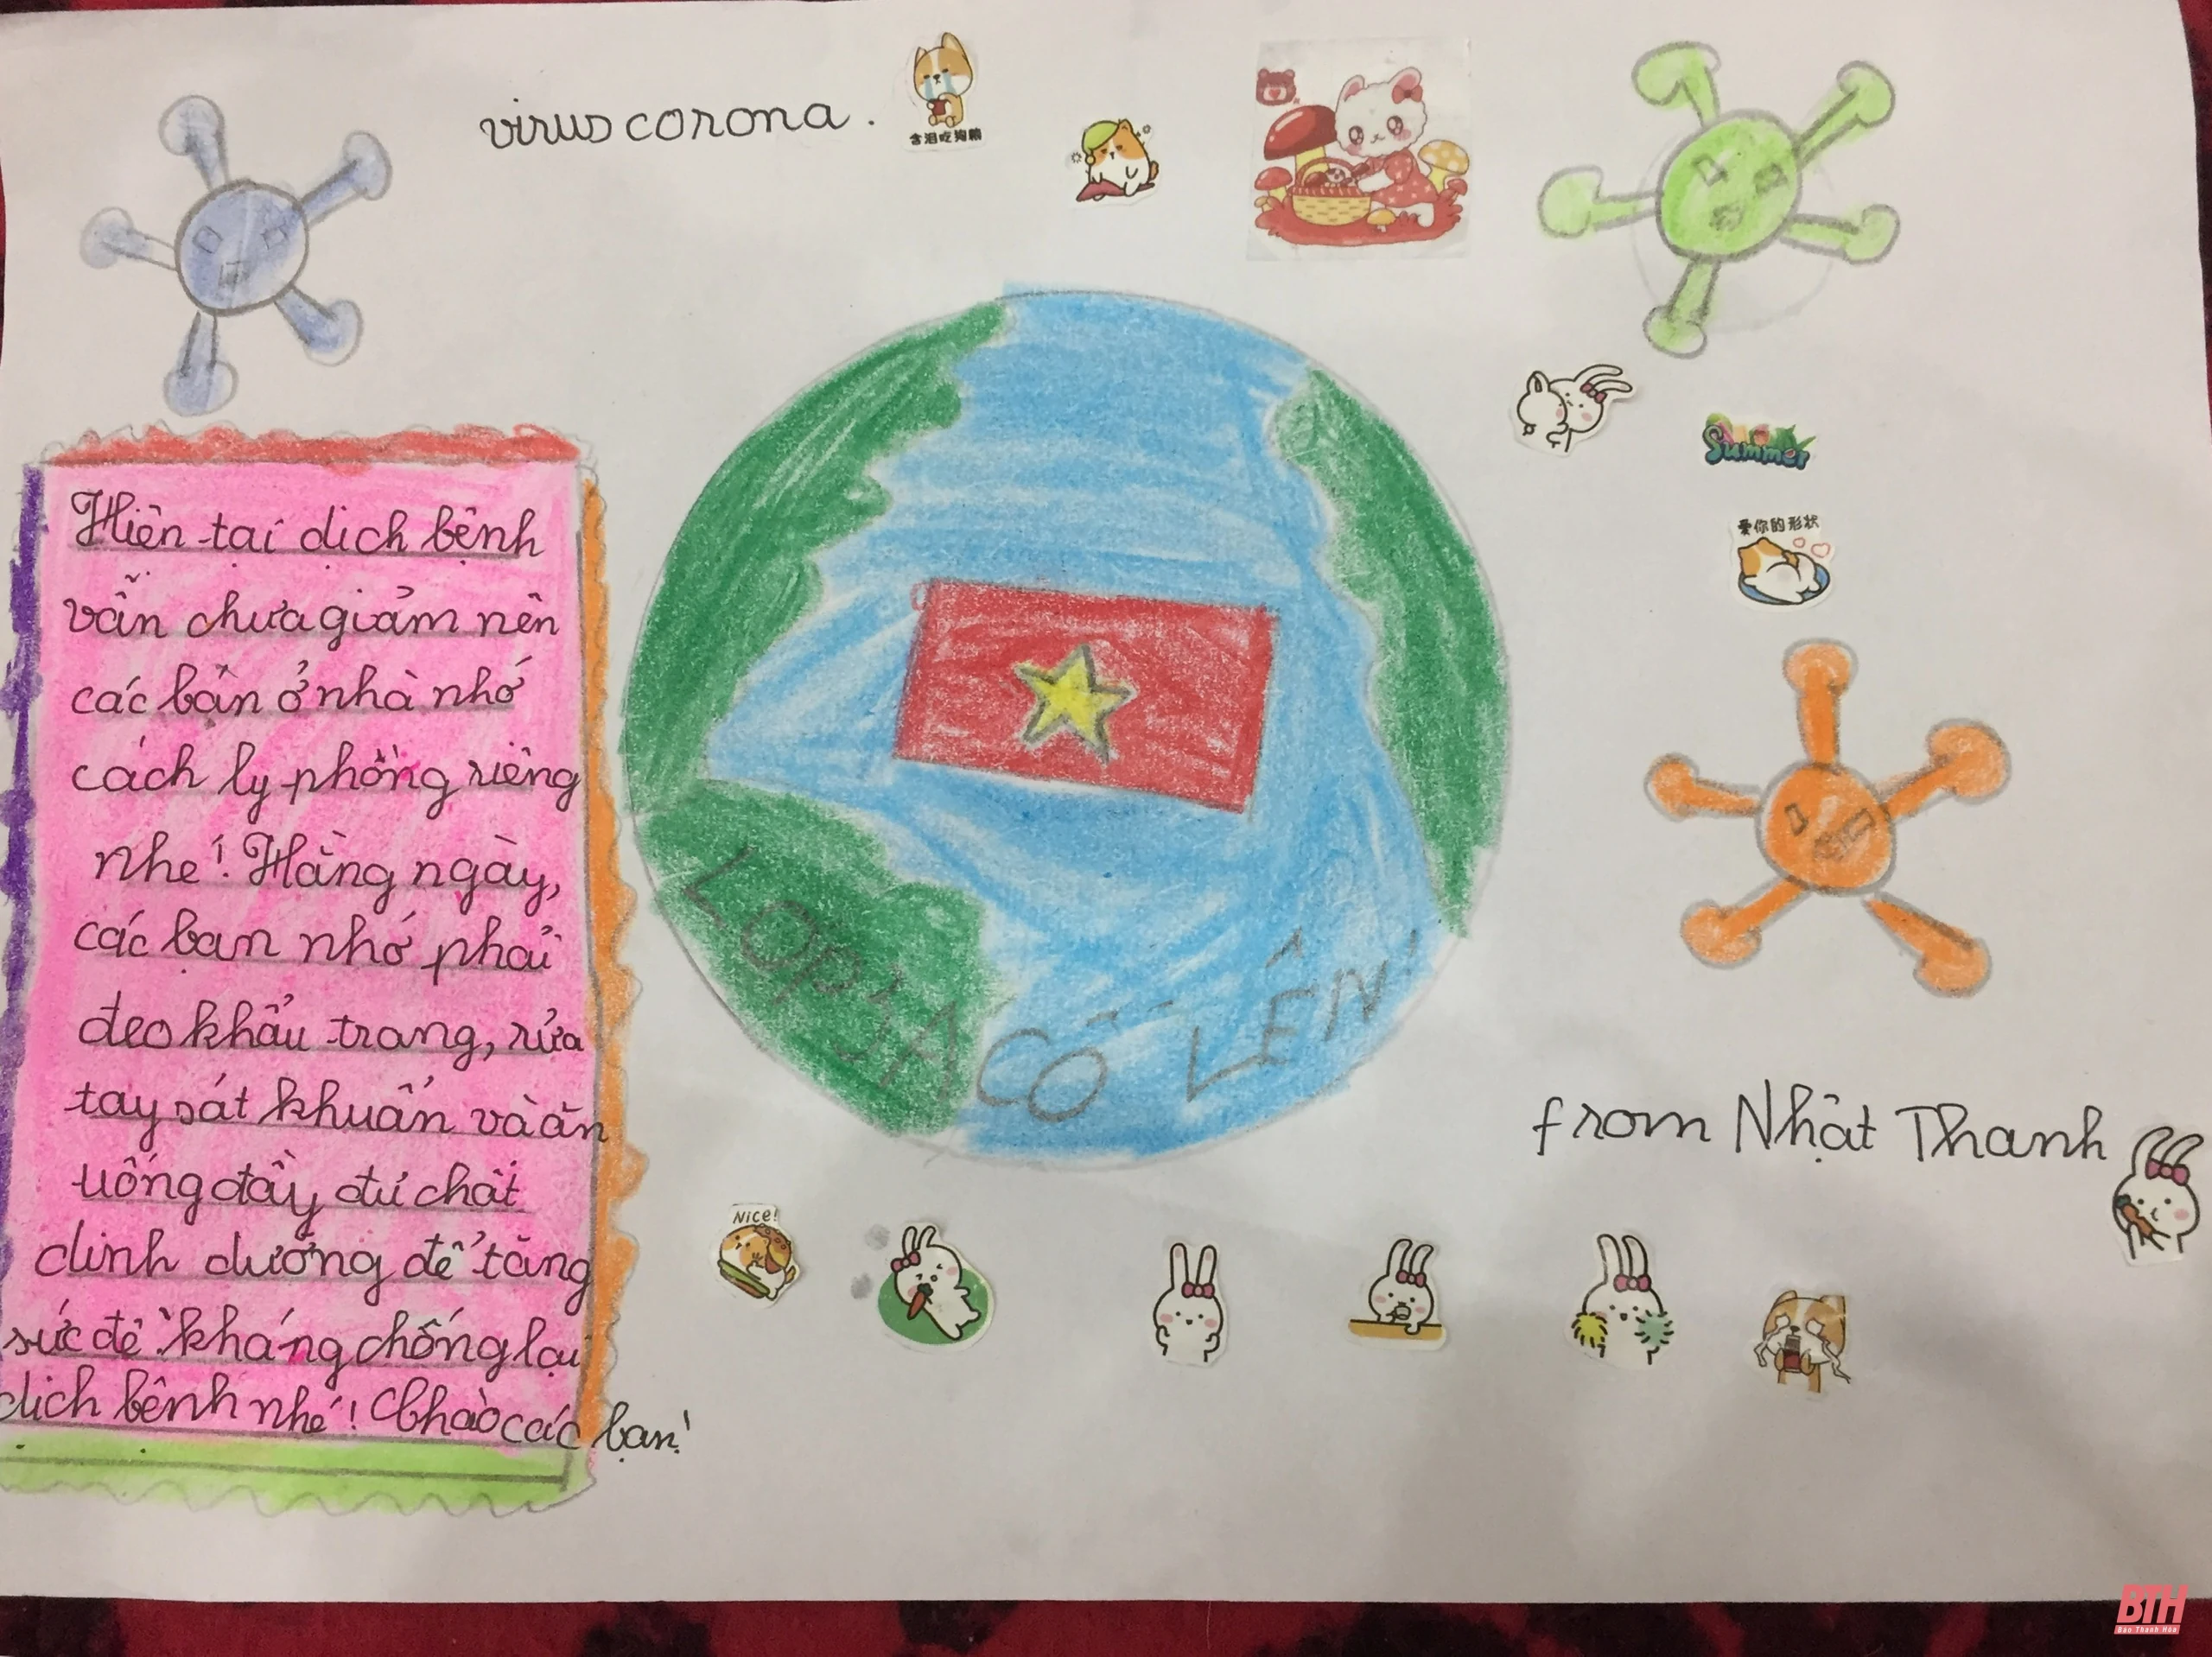 virus corona.
含泪吃狗粮
Summer
爱你的形状
Hiện tại dịch bệnh
vẫn chưa giảm nên
các bạn ở nhà nhớ
cách ly phòng riêng
nhé! Hàng ngày,
các bạn nhớ phải
đeo khẩu trang, rửa
tay sát khuẩn và ăn
uống đầy đủ chất
dinh dưỡng để tăng
sức đề kháng chống lại
dịch bệnh nhé! Chào các bạn!
LỚP 3A CỐ LÊN!
from Nhật Thanh
Nice!
BTH
Báo Thanh Hóa